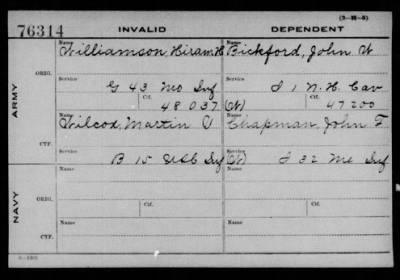 (3-38-5)
76314 INVALID DEPENDENT
Name Name
Williamson, Hiram H Bickford, John W
ORIG. Service Service
G 43 Mo Inf I 1 N. H. Cav
Ctf. Ctf.
48 037 (W) 47200
ARMY
Name Name
Wilcox, Martin V Chapman, John F
CTF. Service Service
B 15 USC Inf (W) I 32 Me Inf
Name Name
NAVY
ORIG. Ctf. Ctf.
Name Name
CTF.